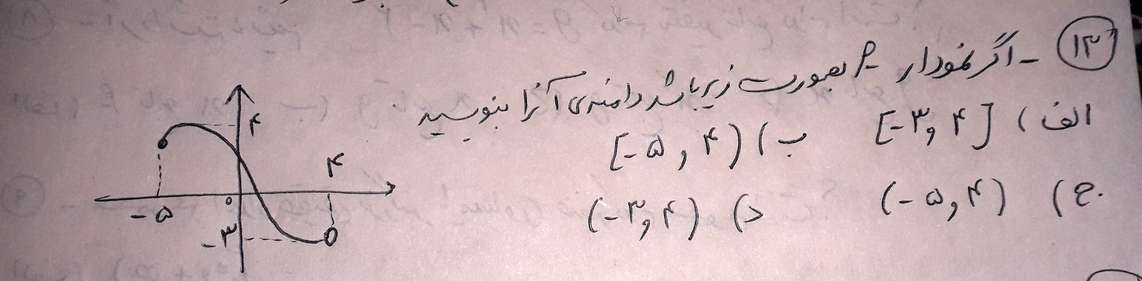 ۱۳ - اگر نمودار f بصورت زیر باشد دامنه‌ی آنرا بنویسید.
الف) [-۳,۴] ب) [-۵,۴)
ج) (-۵,۴) د) (-۳,۴)
۴
۴
-۵
۰
-۳